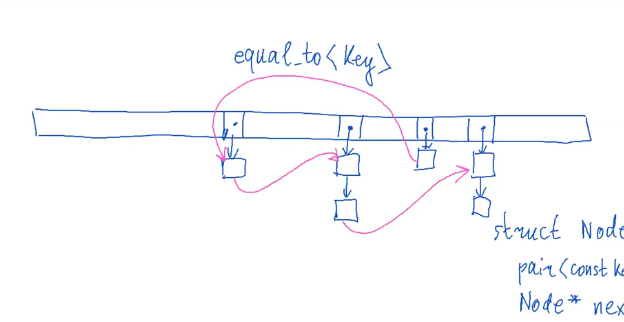 equal_to<Key>
struct Node
pair<const Ke
Node* nex